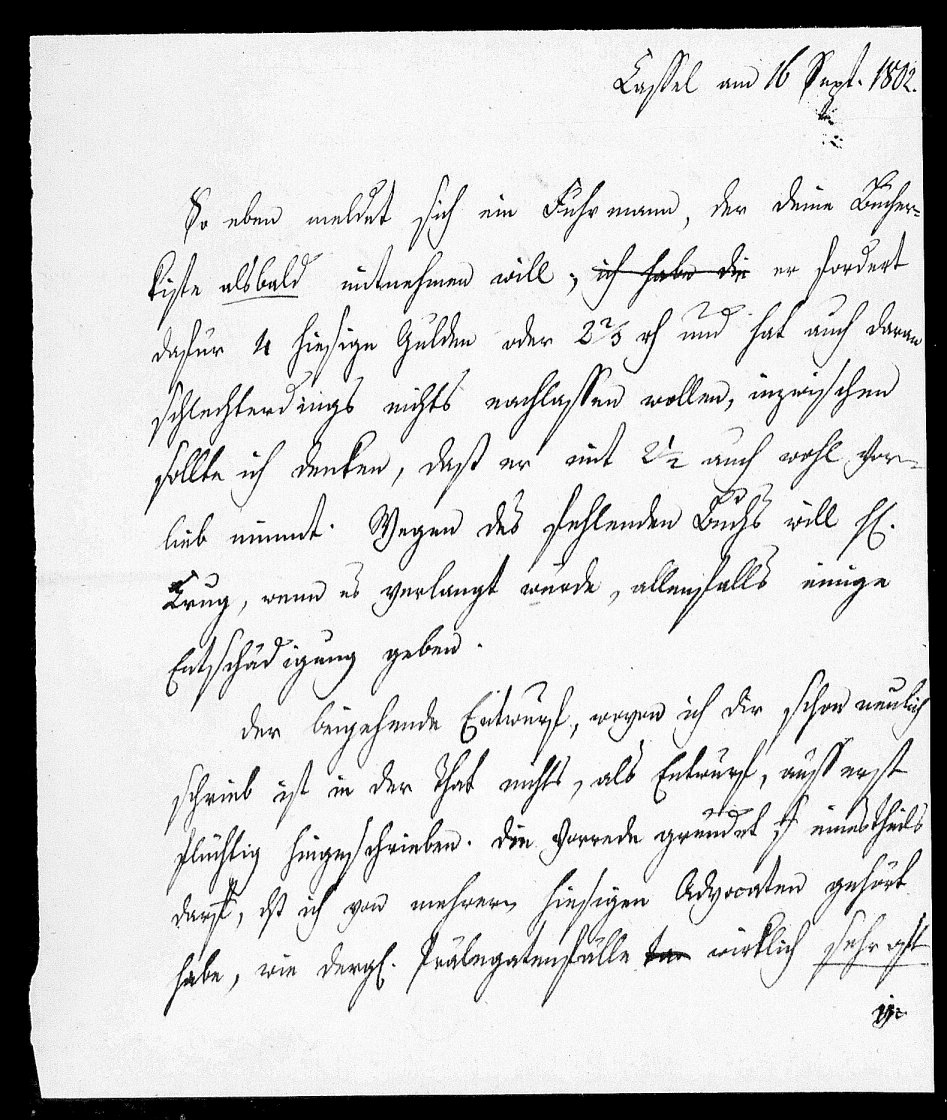 Cassel am 16 Sept. 1802.
So eben meldet sich ein Fuhrmann, der deine Bücher-
kiste alsbald mitnehmen will; ich habe die er fordert
dafür 4 hiesige Gulden oder 2 2/3 rh und hat auch daran
schlechterdings nichts nachlassen wollen, inzwischen
sollte ich denken, dass er mit 2 1/2 auch wohl vor-
lieb nimmt. Wegen des fehlenden Buchs will H.
Krug, wenn es verlangt würde, allenfalls einige
Entschädigung geben.
Der beigehende Entwurf, wegen ich dir schon neulich
schrieb ist in der That nichts, als Entwurf, äusserst
flüchtig hingeschrieben. Die Vorrede gründet s einestheils
darauf, dß ich von mehrern hiesigen Advocaten gehört
habe, wie dergl. Prälegatenfälle wirklich sehr oft